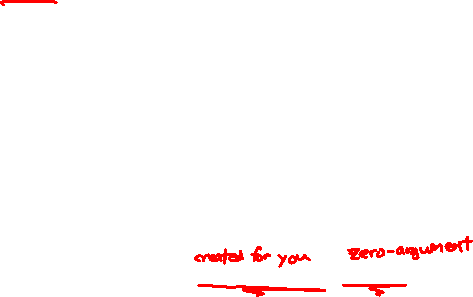 created for you zero-argument